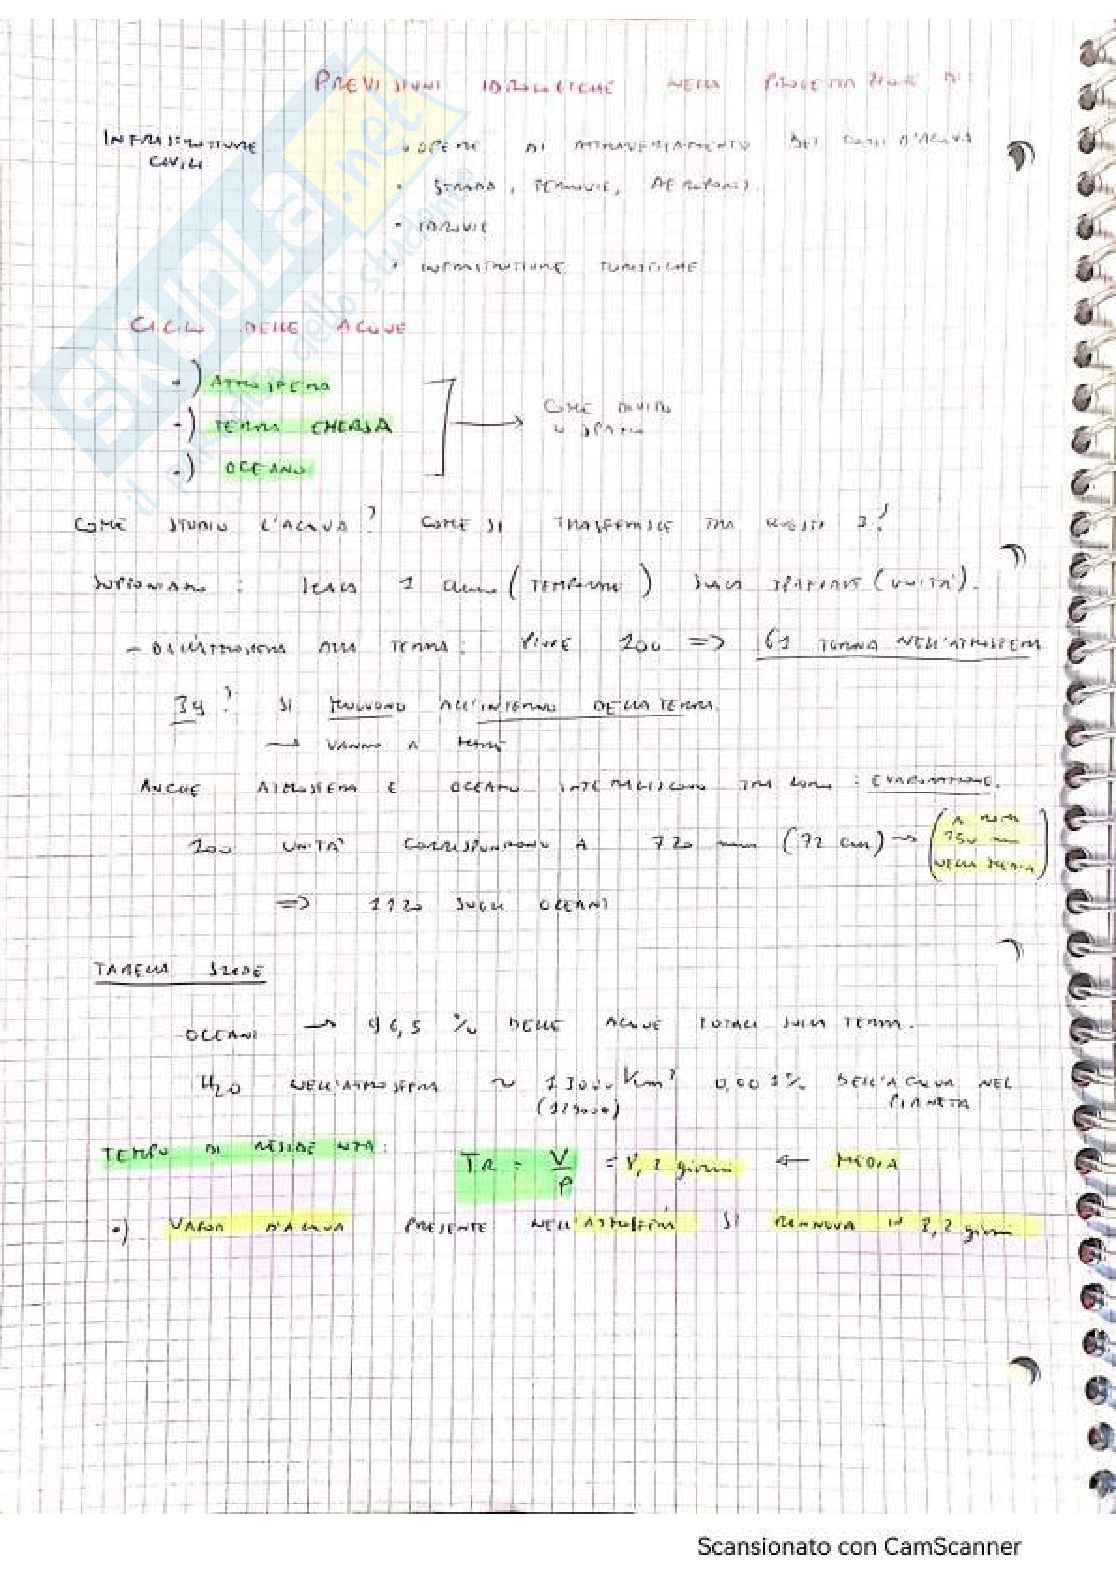 PREVISIONI IDROLOGICHE NELLA PROGETTAZIONE DI:
INFRASTRUTTURE CIVILI
• OPERE DI ATTRAVERSAMENTO DEI CORSI D'ACQUA
• STRADE, FERROVIE, AEROPORTI.
• IDROVIE
• INFRASTRUTTURE TURISTICHE
CICLO DELLE ACQUE
•) ATMOSFERA
•) TERRA EMERSA
•) OCEANO
COME DIVIDO LO SPAZIO
COME STUDIO L'ACQUA? COME SI TRASFERISCE TRA QUESTI 3?
SUPPONIAMO: SCALA 1 anno (TEMPORALE) SCALA SPAZIALE (UNITÀ).
- DALL'ATMOSFERA ALLA TERRA: PIOVE 100 => 61 TORNA NELL'ATMOSFERA
39? SI MUOVONO ALL'INTERNO DELLA TERRA.
→ VANNO A MARE
ANCHE ATMOSFERA E OCEANO INTERAGISCONO TRA LORO: EVAPORAZIONE.
100 UNITÀ CORRISPONDONO A 720 mm (72 cm) → (A ROMA 750 mm NELLA MEDIA)
=> 1120 SUGLI OCEANI
TABELLA SLIDE
OCEANI → 96,5 % DELLE ACQUE TOTALI SULLA TERRA.
H2O NELL'ATMOSFERA ~ 13000 Km³ 0,001% DELL'ACQUA NEL PIANETA
(12900)
TEMPO DI RESIDENZA: TR = V/P = 8,2 giorni ← MEDIA
•) VAPOR D'ACQUA PRESENTE NELL'ATMOSFERA SI RINNOVA IN 8,2 giorni
SKUOLA.net
il paradiso dello studente
Scansionato con CamScanner